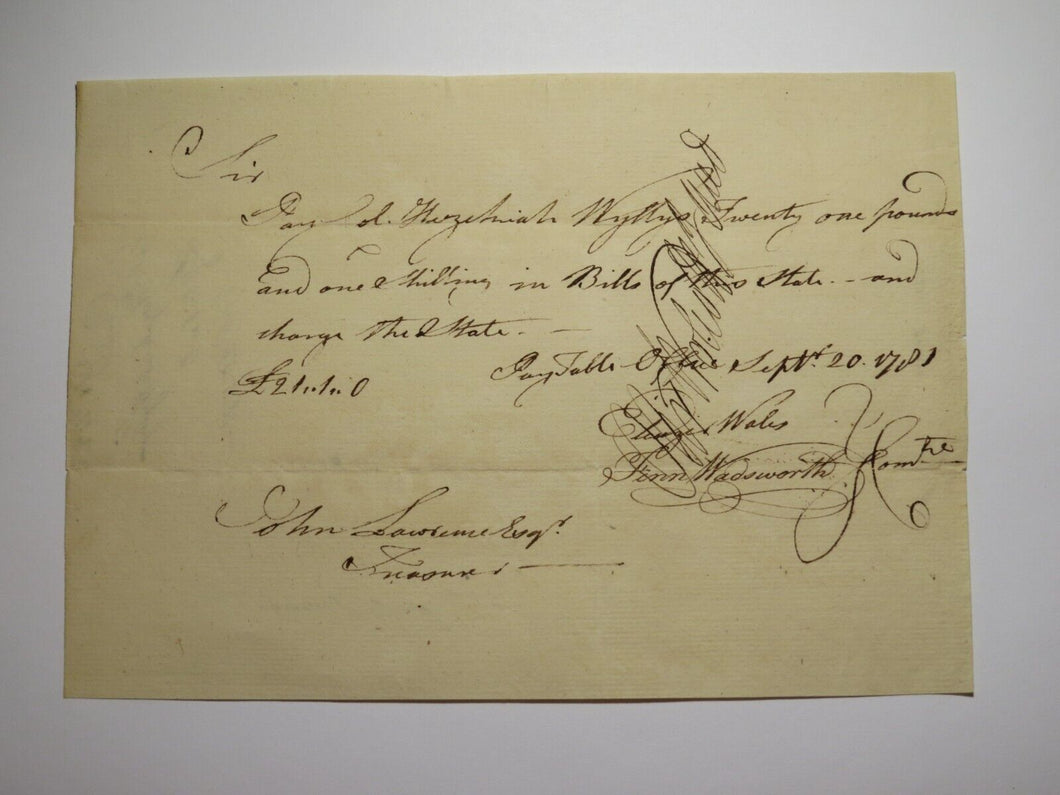 Sir
Pay Col. Hezekiah Wyllys Twenty one pounds
and one Shilling in Bills of this State. - and
charge the State. -
£21.1.0
Pay Table Office Sept.r 20. 1781
Eleazr Wales
Fenn Wadsworth
Comtee
John Lawrence Esqr.
Treasurer